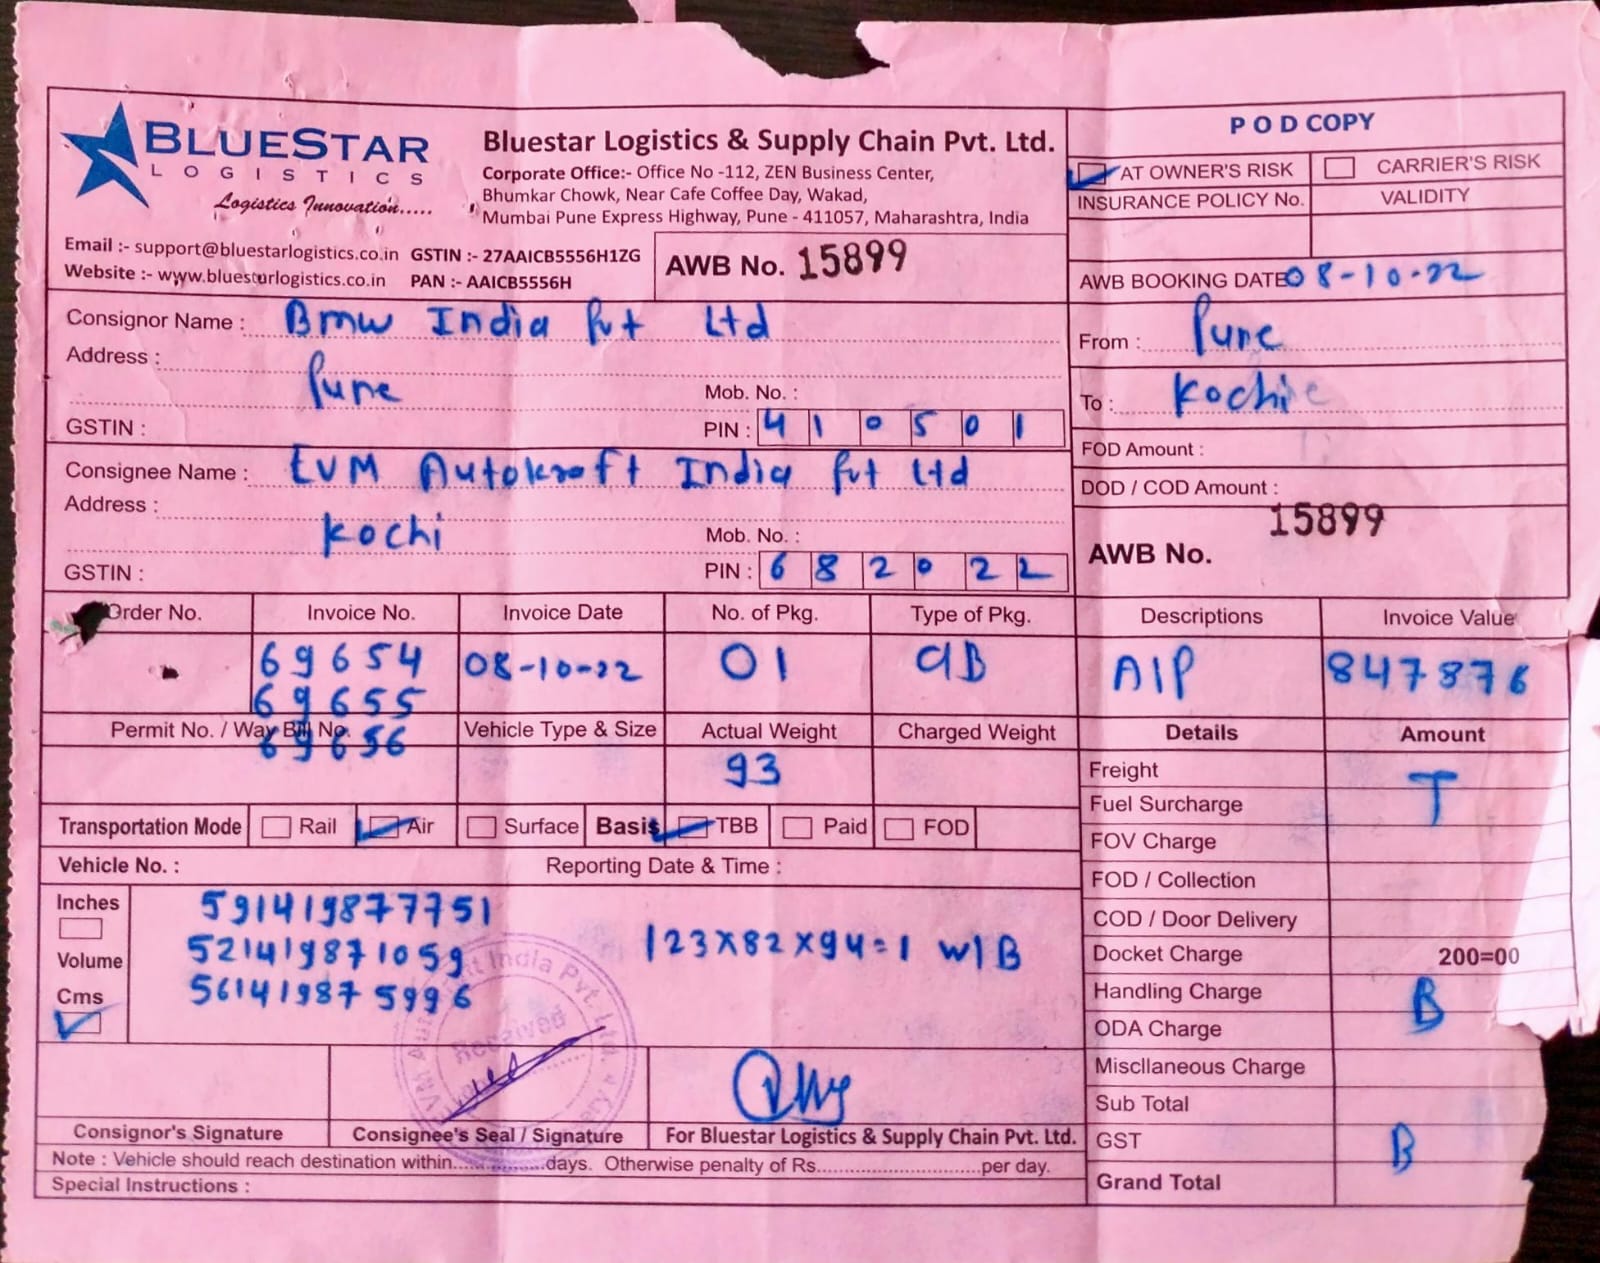 BLUESTAR
LOGISTICS
Logistics Innovation.....
Bluestar Logistics & Supply Chain Pvt. Ltd.
Corporate Office:- Office No -112, ZEN Business Center,
Bhumkar Chowk, Near Cafe Coffee Day, Wakad,
Mumbai Pune Express Highway, Pune - 411057, Maharashtra, India
Email :- support@bluestarlogistics.co.in GSTIN :- 27AAICB5556H1ZG
Website :- www.bluestarlogistics.co.in PAN :- AAICB5556H
AWB No. 15899
POD COPY
AT OWNER'S RISK CARRIER'S RISK
INSURANCE POLICY No. VALIDITY
AWB BOOKING DATE 08-10-22
From : Pune
To : Kochi
FOD Amount :
DOD / COD Amount :
15899
AWB No.
Consignor Name : Bmw India Pvt Ltd
Address :
Pune Mob. No. :
GSTIN : PIN : 410501
Consignee Name : EVM Autokraft India Pvt Ltd
Address :
Kochi Mob. No. :
GSTIN : PIN : 682022
Order No. Invoice No. Invoice Date No. of Pkg. Type of Pkg. Descriptions Invoice Value
69654 08-10-22 01 AIP 847876
69655
69656
Permit No. / Way Bill No. Vehicle Type & Size Actual Weight Charged Weight
93
Transportation Mode Rail Air Surface Basis TBB Paid FOD
Vehicle No. : Reporting Date & Time :
Inches
Volume
Cms
591419877751
521419871059
561419875996
123X82X94=1 W/B
Received
Consignor's Signature Consignee's Seal / Signature For Bluestar Logistics & Supply Chain Pvt. Ltd.
Note : Vehicle should reach destination within..................days. Otherwise penalty of Rs..............................per day.
Special Instructions :
Details Amount
Freight T
Fuel Surcharge
FOV Charge
FOD / Collection
COD / Door Delivery
Docket Charge 200=00
Handling Charge B
ODA Charge
Miscllaneous Charge
Sub Total
GST B
Grand Total